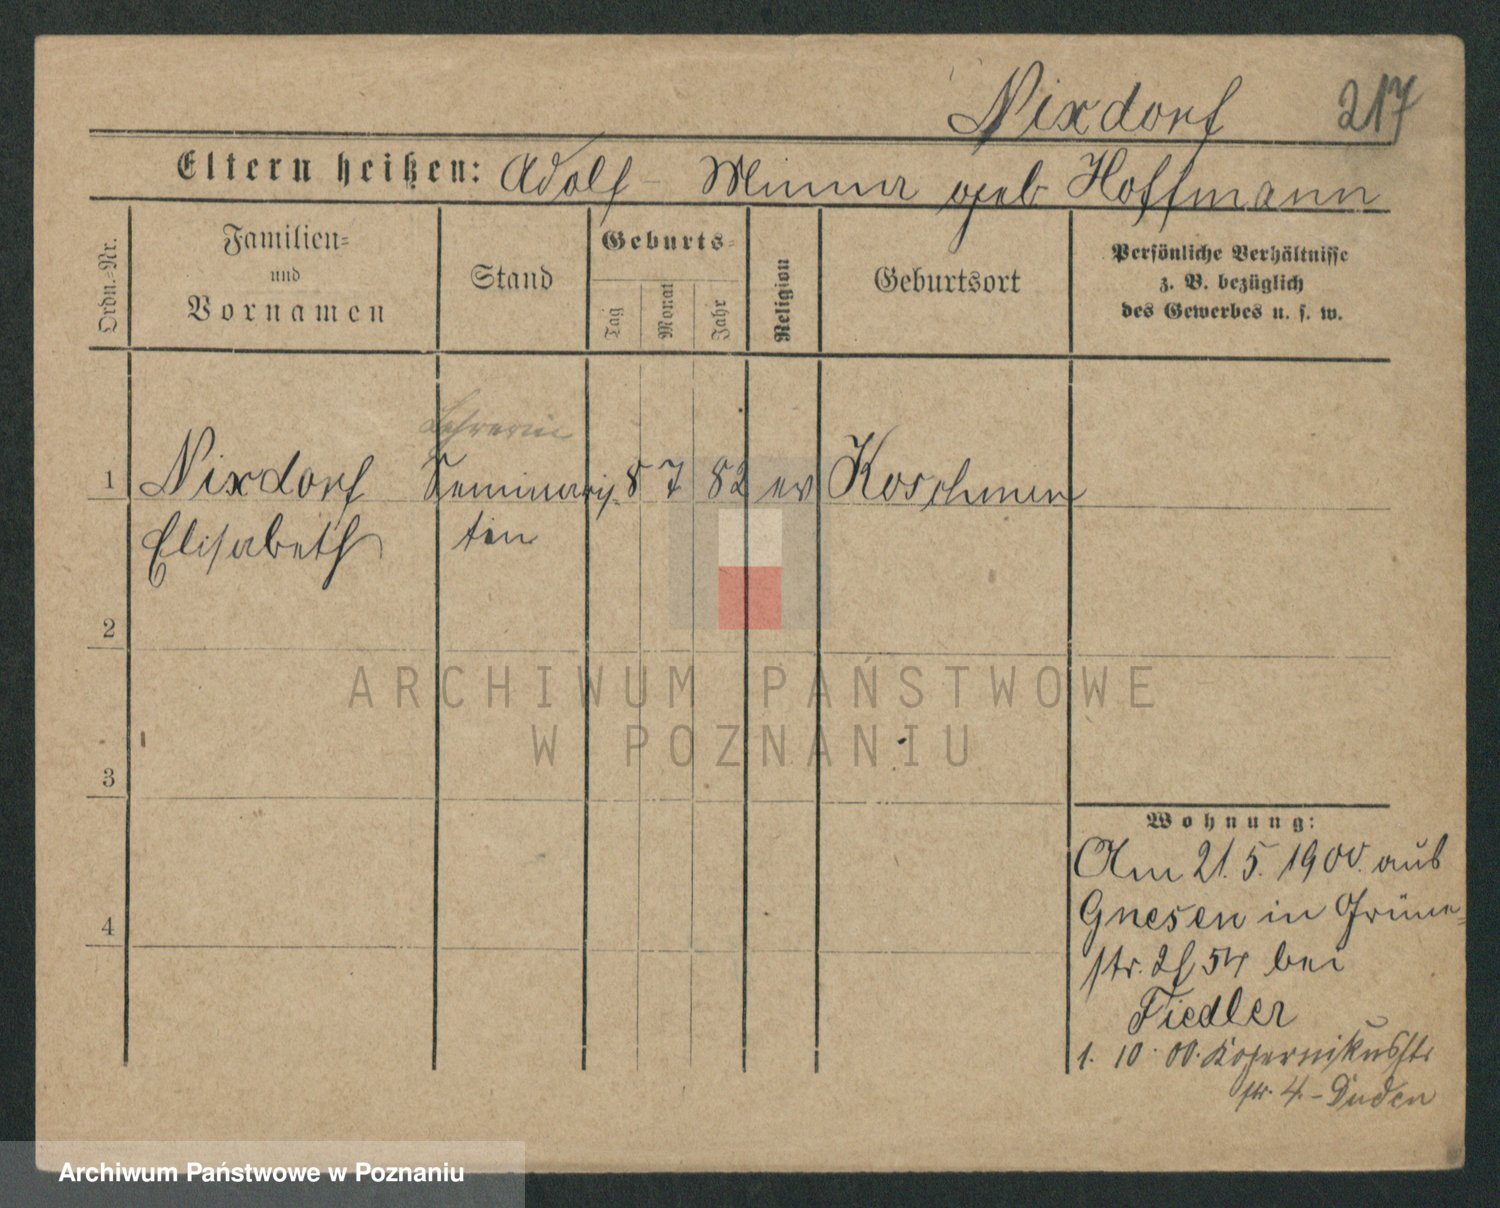 Nixdorf 217
Eltern heißen: Adolf - Minna geb Hoffmann
Ordn.-Nr.
Familien- und Vornamen
Stand
Geburts-
Tag
Monat
Jahr
Religion
Geburtsort
Persönliche Verhältnisse
z. B. bezüglich
des Gewerbes u. s. w.
Lehrerin
1 Nixdorf Seminaris- 8 7 82 ev Koschmin
Elisabeth tin
2
3
4
Wohnung:
Am 21. 5. 1900. aus
Gnesen in Grüne-
str. 54 bei
Fiedler
1. 10. 00. Kopernikusstr
4 - Duden
ARCHIWUM PAŃSTWOWE
W POZNANIU
Archiwum Państwowe w Poznaniu